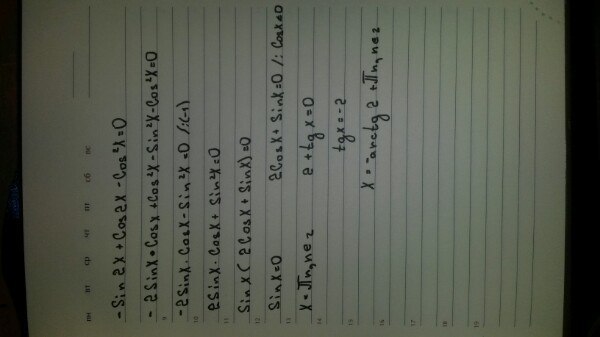 пн вт ср чт пт сб вс
-Sin2x + Cos2x - Cos²x=0
- 2Sinx • Cosx + Cos²x - Sin²x - Cos²x=0
9
-2Sinx · Cosx - Sin²x = 0 /:(-1)
10
2Sinx · Cosx + Sin²x=0
11
Sinx ( 2Cosx + Sinx)=0
12
Sinx=0 2Cosx + Sinx=0 /: Cosx≠0
13
x = πn, n∈z 2 + tgx=0
14
tgx=-2
15
x = -arctg2 + πn, n∈z
16
17
18
19